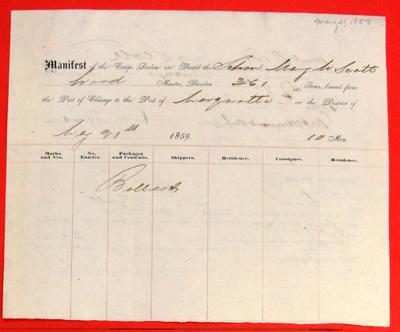 May 21, 1859
Manifest of the Cargo Laden on Board the Schr Mary M Scott
Wood Master, Burden 361 Tons, bound from
the Port of Chicago to the Port of Marquette in the District of
May 21st 1859. 10 Men.
Marks and Nos. No. Entries. Packages and Contents. Shippers. Residence. Consignee. Residence.
Ballast